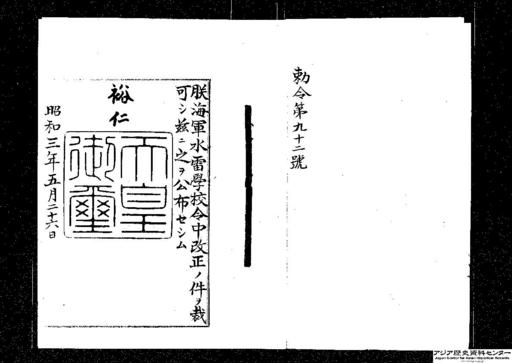 勅令第九十二號
朕海軍水雷學校令中改正ノ件ヲ裁
可シ茲ニ之ヲ公布セシム
裕仁
天皇御璽
昭和三年五月二十六日
アジア歴史資料センター
Japan Center for Asian Historical Records